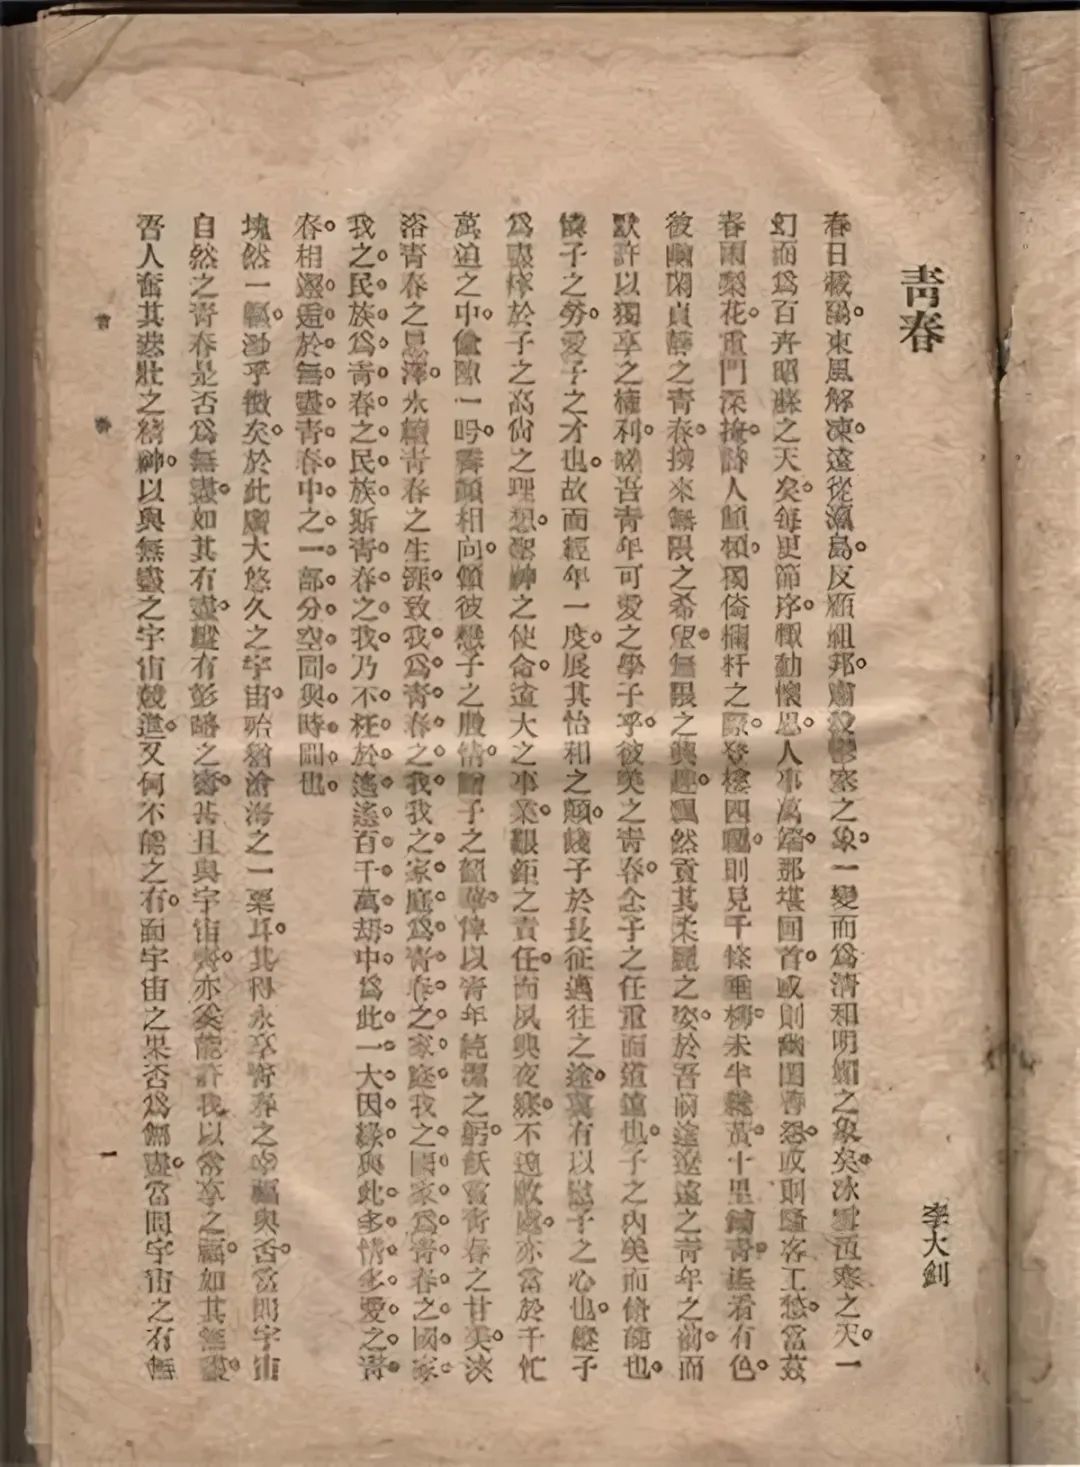 青春
李大釗
春日載陽。東風解凍。遠從瀛島。反顧祖邦。肅殺鬱塞之象。一變而爲清和明媚之象矣。冰雪沍寒之天。一
幻而爲百卉昭蘇之天矣。每更節序。輒動懷思。人事萬端。那堪回首。或則幽閨善怨。或則羈客工愁。當茲
春雨梨花。重門深掩。詩人憔悴。獨倚欄杆之際。登樓四矚。則見千條垂柳。未半纔黃。十里鋪青。遙看有色。
彼幽閑貞靜之青春。携來無限之希望。無限之興趣。飄然貢其柔麗之姿。於吾前途遼遠之青年之前。而
默許以獨享之權利。嗟吾青年可愛之學子乎。彼美之青春。念子之任重而道遠也。子之內美而修能也。
憐子之勞。愛子之才也。故而經年一度。展其怡和之顏。餞子於長征邁往之途。冀有以慰子之心也。縱子
爲盡瘁於子之高尚之理想。聖神之使命。遠大之事業。艱鉅之責任。而夙興夜寐。不遑啟處。亦當於千忙
萬迫之中。偷隙一盻。霽顏相向。領彼戀子之殷情。贈子之韶華。俾以青年純潔之躬。飫嘗青春之甘美。浹
浴青春之恩澤。永續青春之生涯。致我爲青春之我。我之家庭爲青春之家庭。我之國家爲青春之國家。
我之民族爲青春之民族。斯青春之我。乃不枉於遙遙百千萬劫中。爲此一大因緣。與此多情多愛之青
春。相邂逅於無盡青春中之一部分空間與時間也
塊然一軀。渺乎微矣。於此廣大悠久之宇宙。殆猶滄海之一粟耳。其得永享青春之幸福與否。當問宇宙
自然之青春是否爲無盡。如其有盡。縱有彭聃之壽。甚且與宇宙齊。亦奚能許我以常享之福。如其無盡。
吾人奮其悲壯之精神。以與無盡之宇宙競進。又何不能之有。而宇宙之果否爲無盡。當問宇宙之有無
青春
一